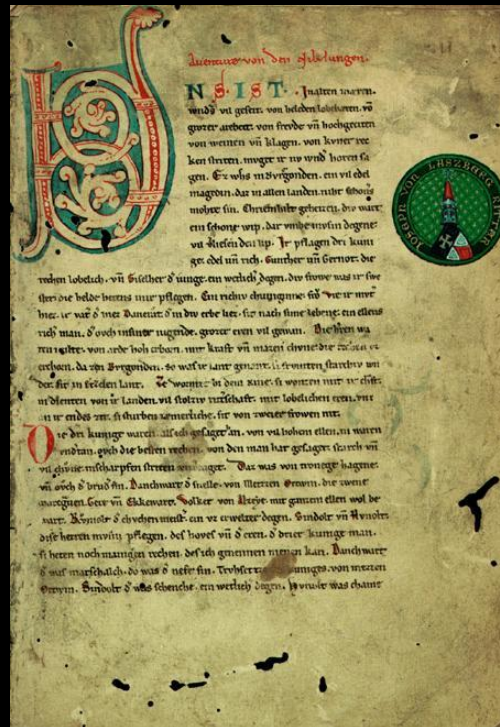 Aventure von den Nibelungen.
NS. IST. In alten mæren
wnders vil geseit. von heleden lobebæren. vñ
grozer arebeit. von frevde vñ hochgeciten
von weinen vñ klagen. von kvner rec
ken striten. mvget ir nv wnd horen sa
gen. Ez whs in Bvrgonden. ein vil edel
magedin. daz in allen landen. niht schoners
mohte sin. Chriemhilt geheizen. div wart
ein schone wip. dar vmbe mvsin degene
vil verliesen den lip. Ir pflagen dri kuni
ge. edel vñ rich. Gunther vñ Gernot. die
rechen lobelich. vñ Giselher d iunge. ein wetlich degen. div frowe was ir swe
ster. die helde hetens inir pflegen. Ein richiv chuniginne. frŏ Vte ir mvt
hiez. ir vater d hiez Dancrat. d in div erbe liez. sit nach sime lebene. ein ellens
rich man. d ovch insiner iugende. grozer eren vil gewan. Die h'ren wa
ren milte. von arde hoh erborn. mit kraft vñ mazen chvne. die rechen vz
erchorn. da zen Bvrgonden. so was ir lant genant. si frvmten starchiv wn
der. sit in Etzelen lant. Ze Wormze bi dem Rine. si wonten mit ir chraft.
in dienten von ir landen. vil stolziv ritterschaft. mit lobelichen eren. vnz
an ir endes zit. si sturben iæmerliche. sit von zweier frowen nit.
Die dri kunige waren. als ich gesaget han. von vil hohen ellen. in waren
vndertan. ovch die besten rechen. von den man hat gesaget. starch vñ
vil chvne. in scharpfen striten vnverzaget. Daz was von Tronege Hagene.
vñ ovch d brvd sin. Danchwart d snelle. von Metzen Ortwin. die zwene
marcgraven. Gere vñ Ekkewart. Volker von Alzeye. mit ganzem ellen wol be
wart. Rvmolt d chvchenmeister. ein vz erwelter degen. Sindolt vñ Hvnolt.
dise herren mvsin pflegen. des hoves vñ d eren. d drier kunige man.
si heten noch manigen rechen. des ich genennen nienen kan. Danchwart
d was marschalch. do was d nefe sin. Trvhsetze des kuniges. von Metzen
Ortwin. Sindolt d was schenche. ein wetlich degen. Hvnolt was chame
JOSEPH VON LASZBERG RITTER